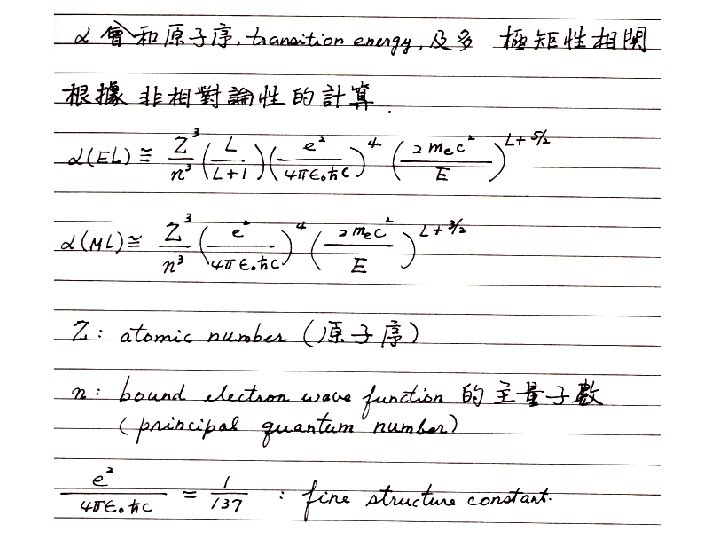 α 會和原子序, transition energy, 及多 極矩性相関
根據 非相對論性的計算.
α(EL) ≅ Z³/n³ (L/(L+1)) (e²/4πε₀ħc)⁴ (2mₑc²/E)^(L+5/2)
α(ML) ≅ Z³/n³ (e²/4πε₀ħc)⁴ (2mₑc²/E)^(L+3/2)
Z: atomic number (原子序)
n: bound electron wave function 的主量子數
(principal quantum number)
e²/4πε₀ħc = 1/137 : fine structure constant.